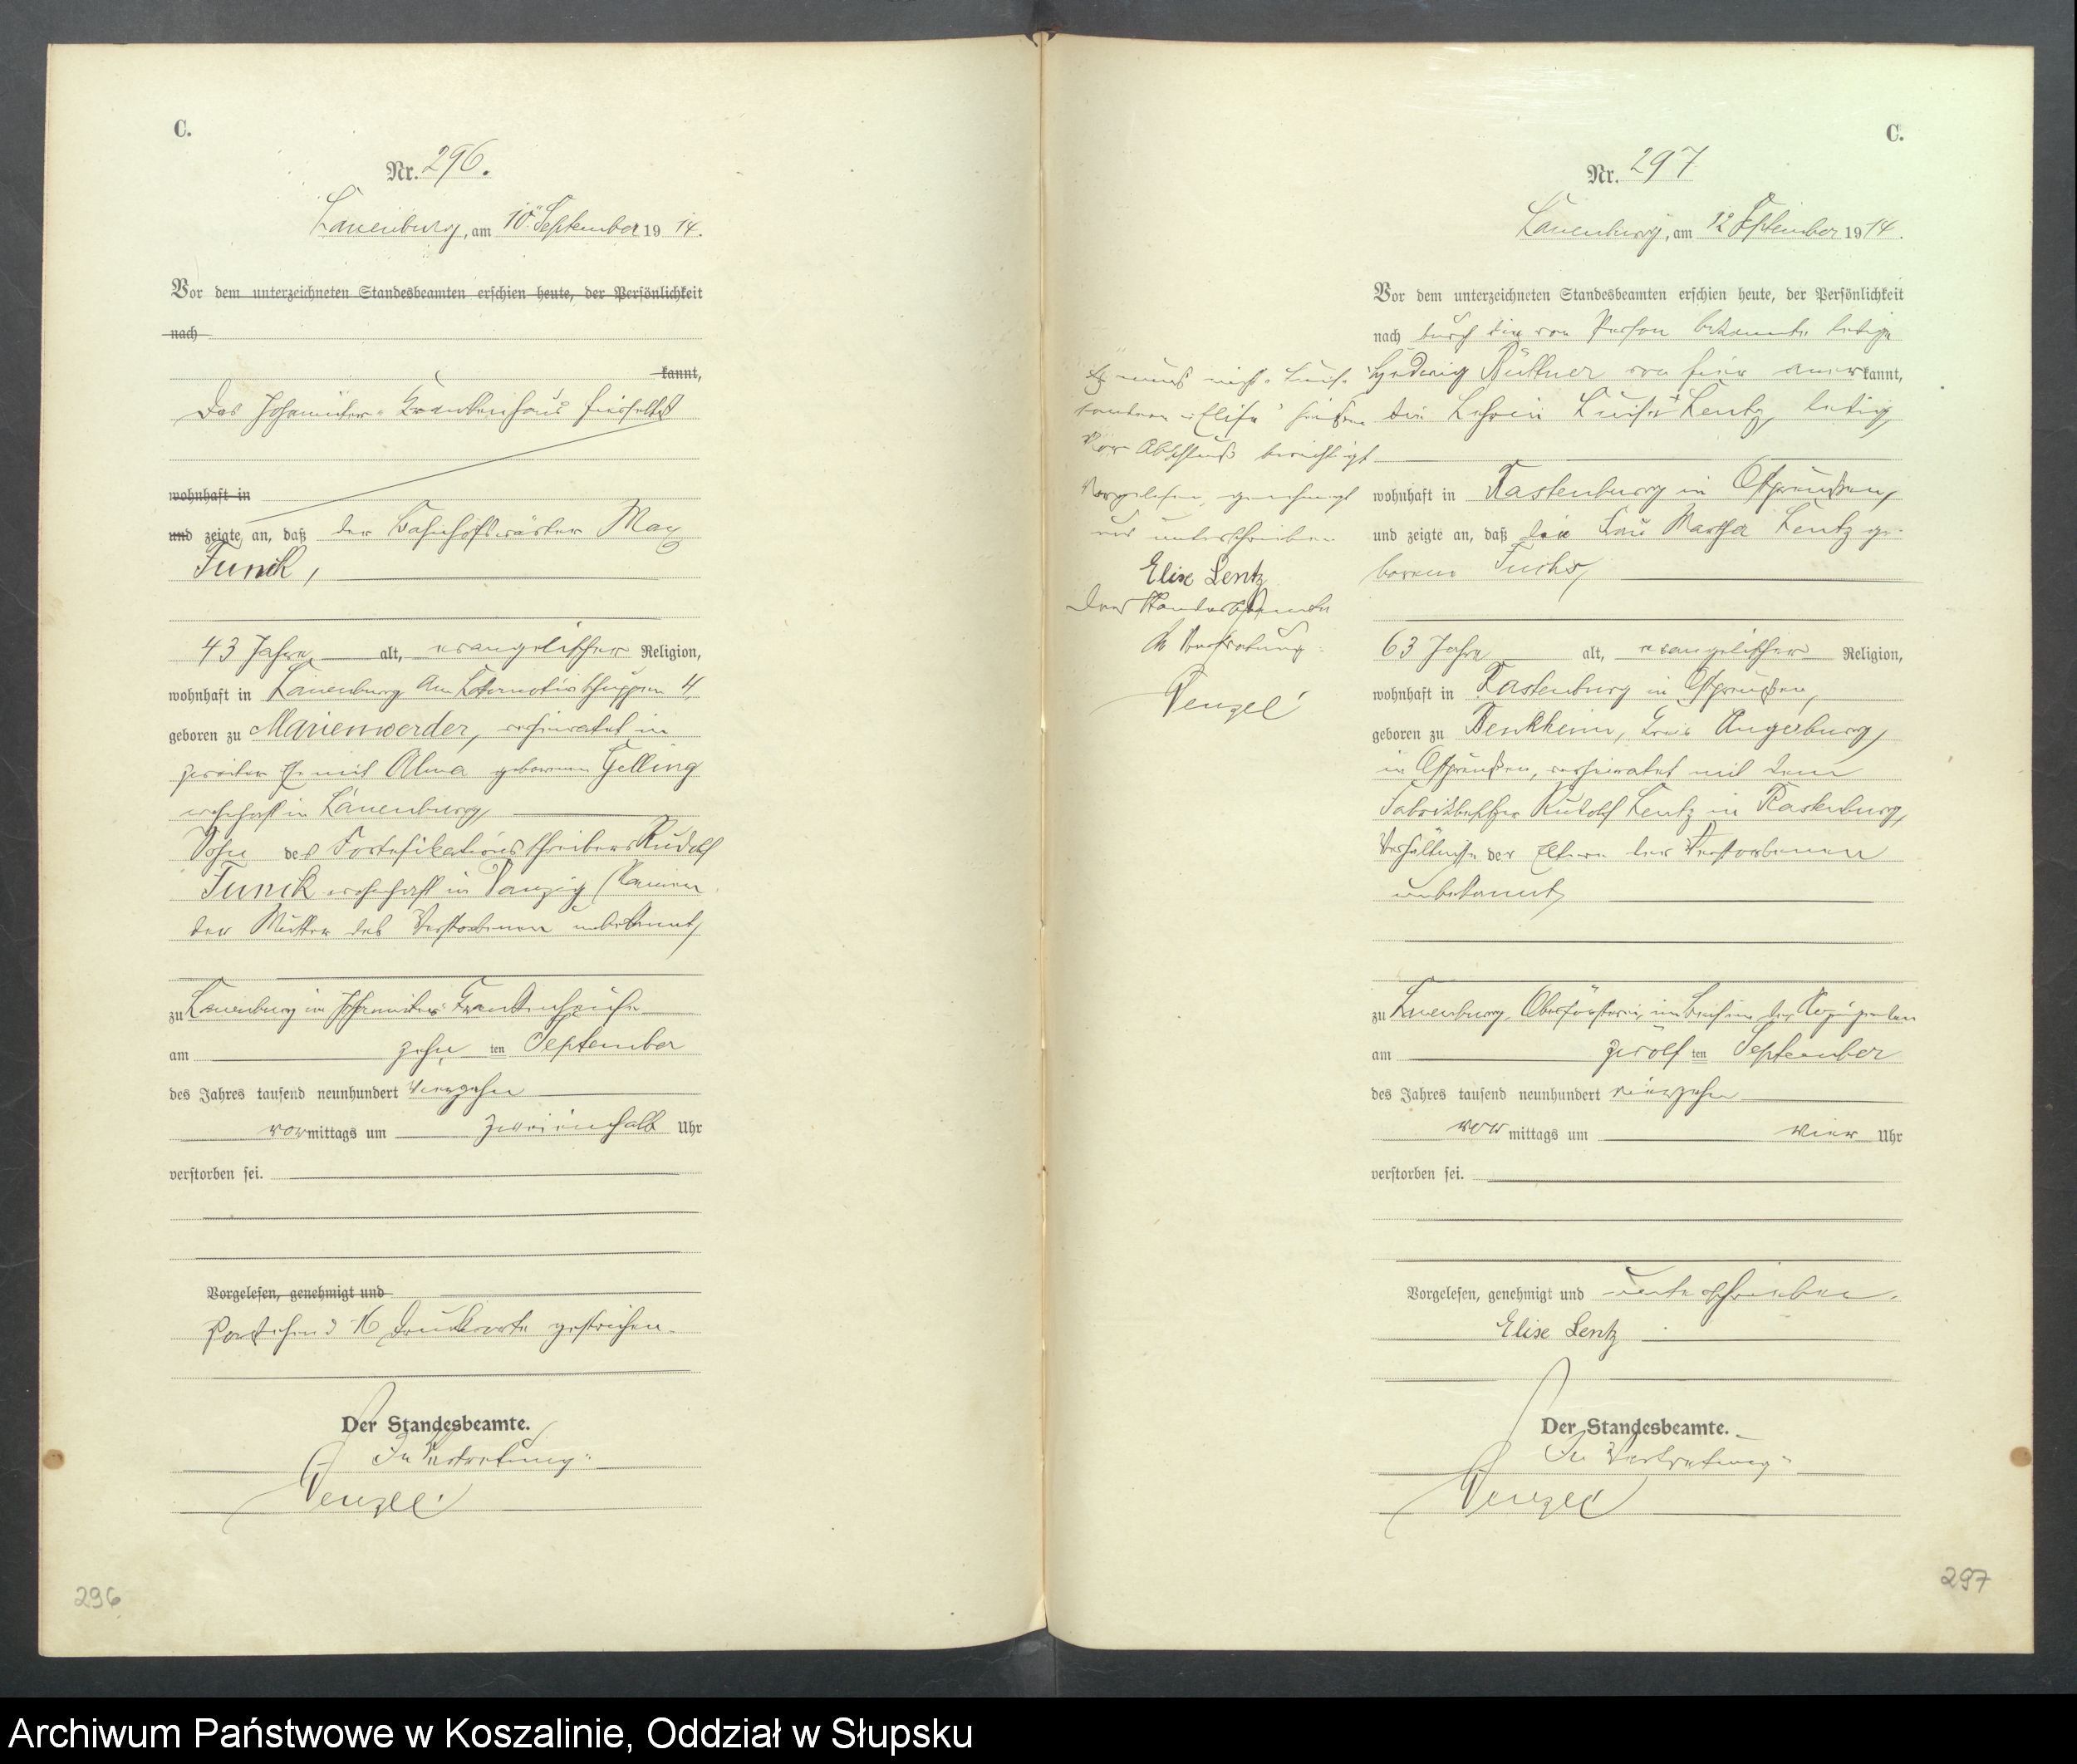 C.
Nr. 296.
Lauenburg, am 10. September 1914.
Vor dem unterzeichneten Standesbeamten erschien heute, der Persönlichkeit
nach
kannt,
Das Johanniter-Krankenhaus hierselbst
wohnhaft in
und zeigte an, daß der Bahnhofswärter Max
Funck,
43 Jahre alt, evangelischer Religion,
wohnhaft in Lauenburg Am Lokomotivschuppen 4,
geboren zu Marienwerder, verheiratet in
zweiter Ehe mit Alma geborenen Gelling
wohnhaft in Lauenburg,
Sohn des Fortifikationsschreibers Rudolf
Funck wohnhaft in Danzig (Namen
der Mutter des Verstorbenen unbekannt)
zu Lauenburg im Johanniter-Krankenhause
am zehnten September
des Jahres tausend neunhundert vierzehn
vormittags um zweieinhalb Uhr
verstorben sei.
Vorgelesen, genehmigt und
Vorstehend 16 Druckworte gestrichen.
Der Standesbeamte.
In Vertretung:
Wenzel
296
C.
Nr. 297
Lauenburg, am 12 September 1914.
Vor dem unterzeichneten Standesbeamten erschien heute, der Persönlichkeit
nach durch die von Person bekannte ledige
Hedwig Büttner von hier anerkannt,
die Luise Lentz, ledig,
wohnhaft in Rastenburg in Ostpreußen,
und zeigte an, daß die Frau Martha Lentz ge-
borene Fuchs,
63 Jahre alt, evangelischer Religion,
wohnhaft in Rastenburg in Ostpreußen,
geboren zu Benkheim, Kreis Angerburg,
in Ostpreußen, verheiratet mit dem
Fabrikbesitzer Rudolf Lentz in Rastenburg,
Verhältnisse der Eltern der Verstorbenen
unbekannt,
zu Lauenburg, Oberförsterei, im Beisein der Anzeigenden
am zwölften September
des Jahres tausend neunhundert vierzehn
vormittags um vier Uhr
verstorben sei.
Vorgelesen, genehmigt und unterschrieben.
Elise Lentz
Der Standesbeamte.
In Vertretung:
Wenzel
Es muß nicht "Luise"
sondern "Elise" heißen
Vor Abschluß berichtigt
Vorgelesen, genehmigt
und unterschrieben
Elise Lentz
Der Standesbeamte
In Vertretung:
Wenzel
297
Archiwum Państwowe w Koszalinie, Oddział w Słupsku